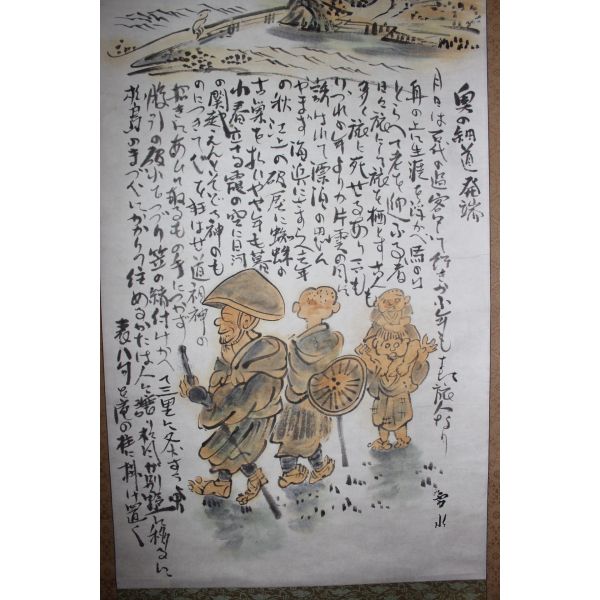 奥の細道 発端
月日は百代の過客にして行きかふ年もまた旅人なり
舟の上に生涯をうかべ馬の口
とらへて老を迎ふる者
は日々旅にして旅を栖とす古人も
多く旅に死せるあり予も
いづれの年よりか片雲の風に
誘はれて漂泊の思ひ
やまず海浜にさすらへ去年
の秋江上の破屋に蜘蛛の
古巣を払いやや年も暮
小春立る霞の空に白河
の関越えんとそぞろ神のも
のにつきて心を狂はせ道祖神の
招きにあひて取るもの手につかず
股引の破れをつづり笠の緒付けかへて三里に灸すうるより
松島の月まづ心にかかりて住めるかたは人に譲り杉風が別墅に移るに
表八句を庵の柱に掛け置く